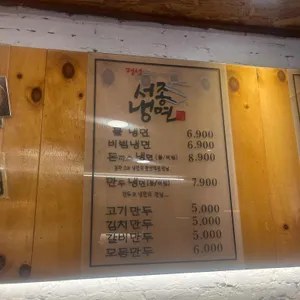 서종
냉면
물 냉면 6,900
비빔냉면 6,900
돈까스 냉면(물/비빔) 8,900
만두 냉면(물/비빔) 7,900
고기만두 5,000
김치만두 5,000
갈비만두 5,000
모듬만두 6,000